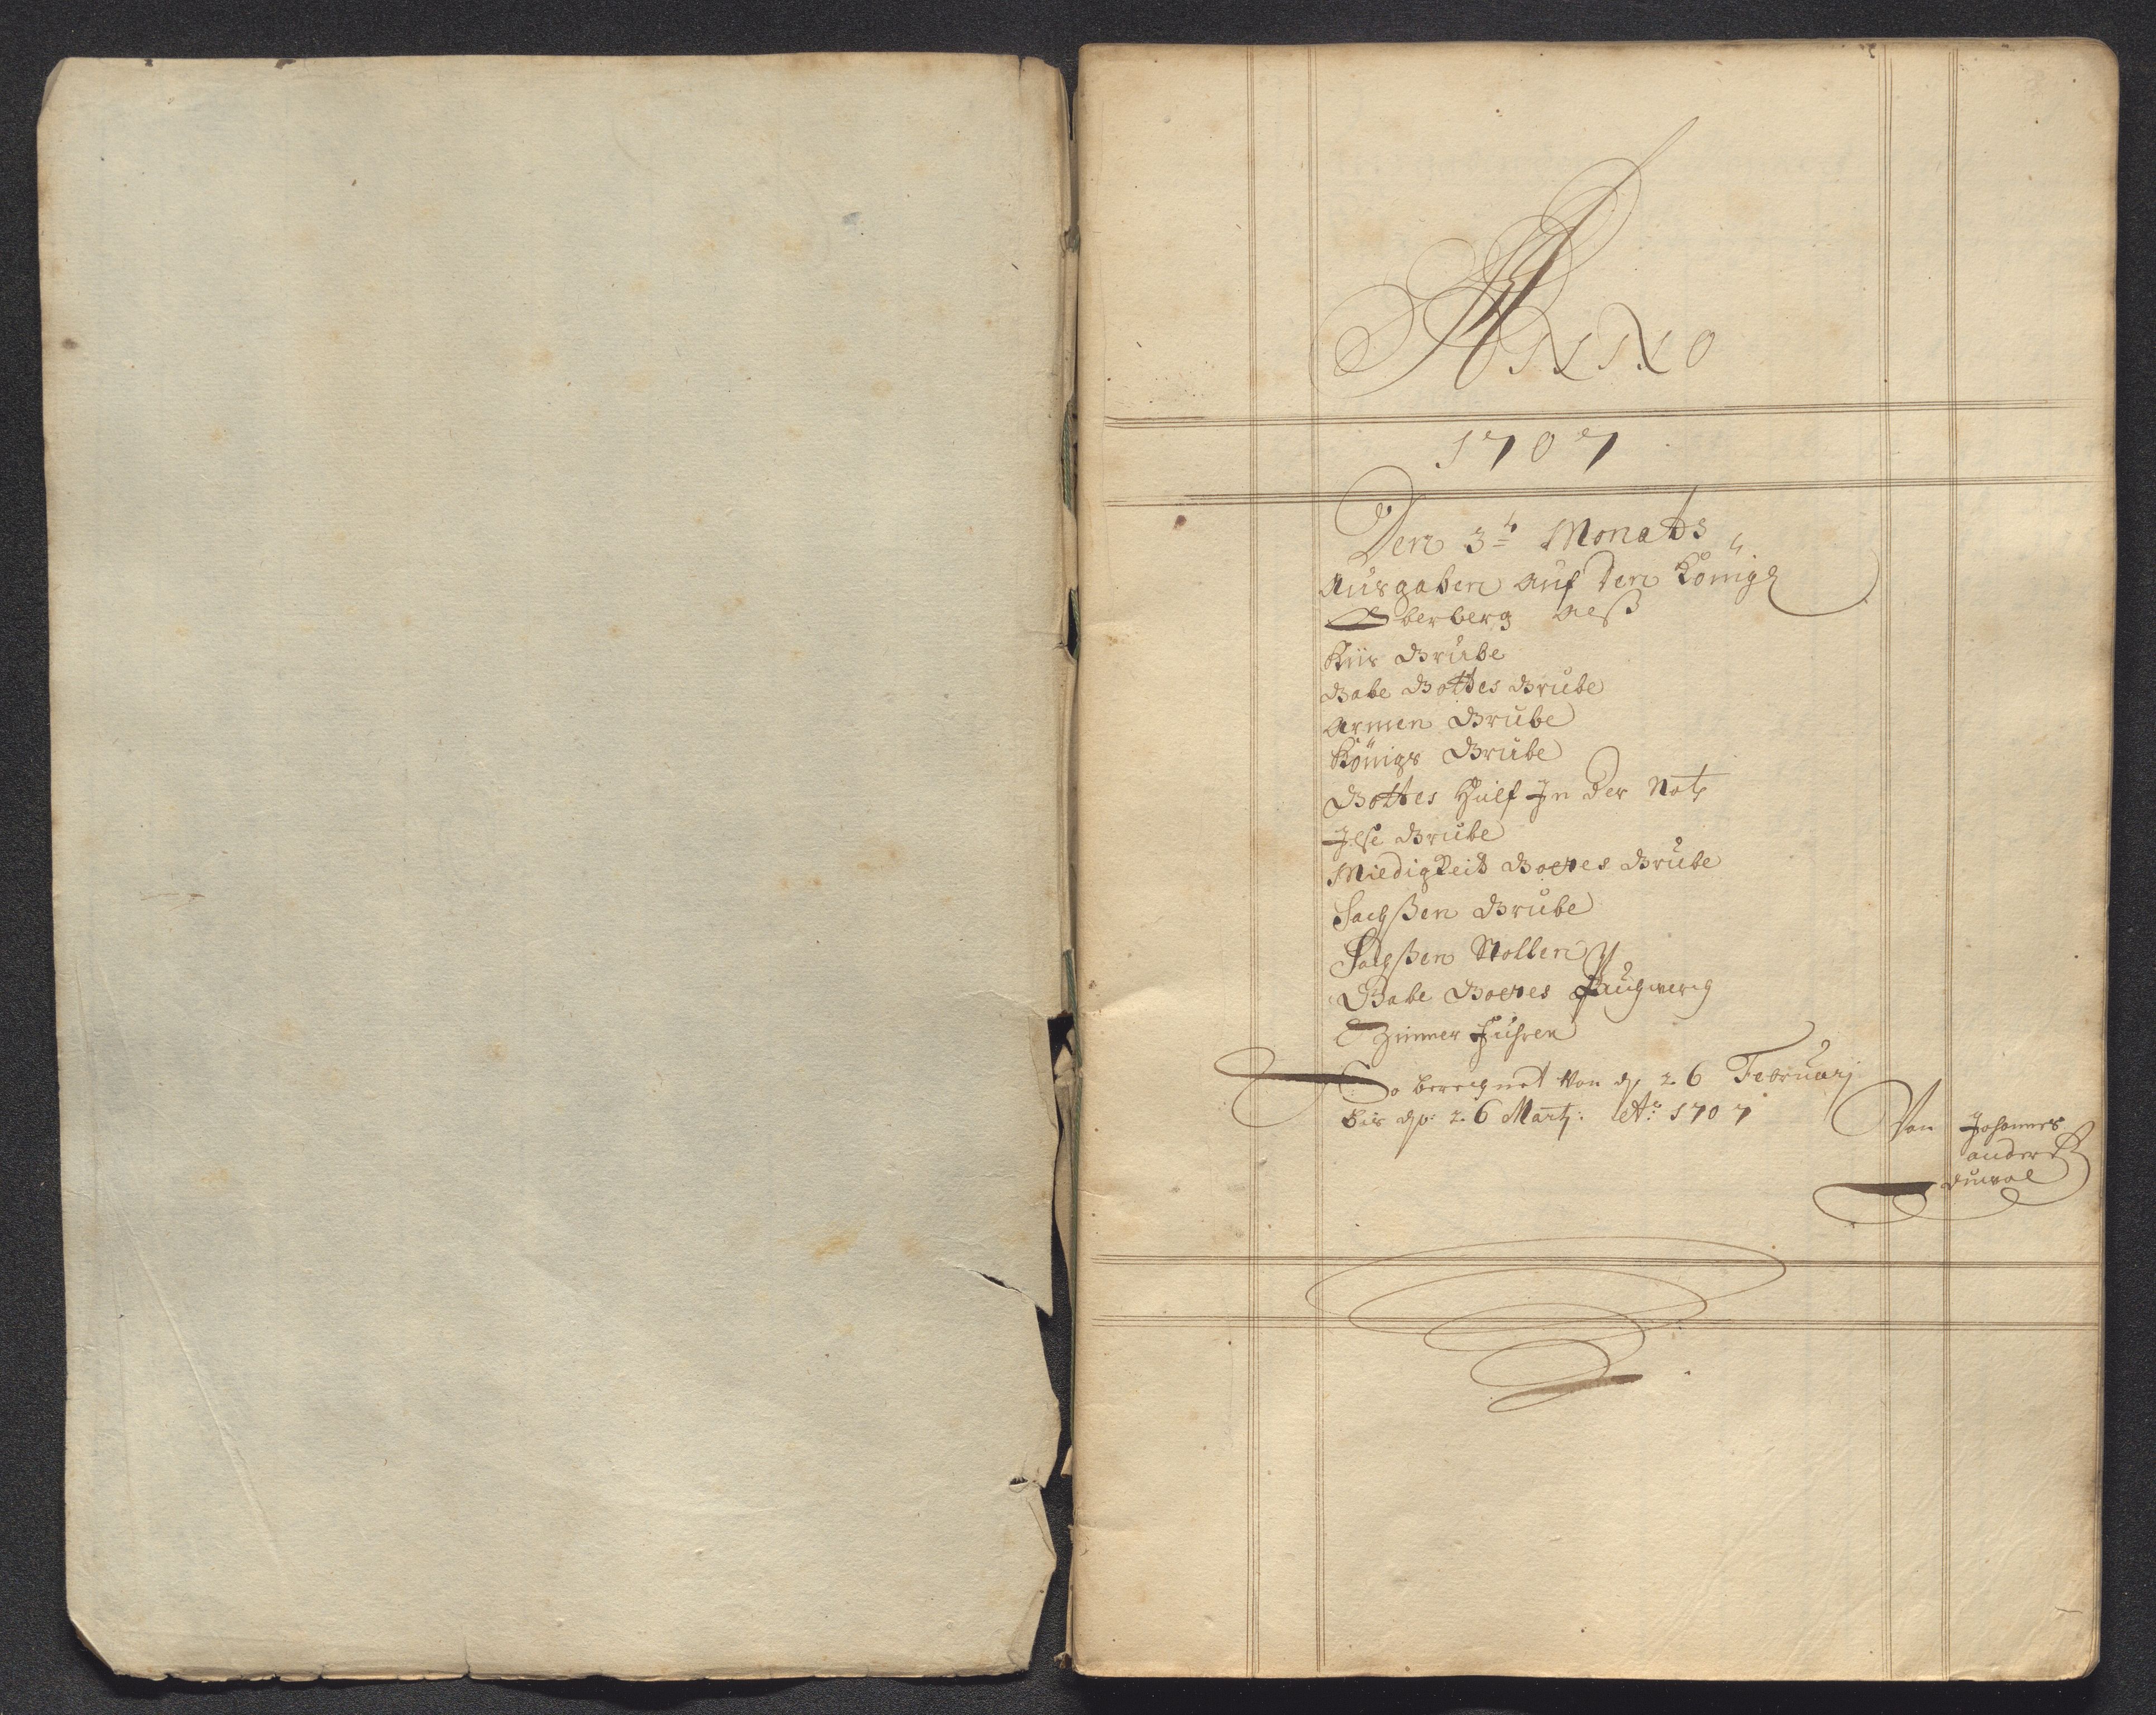 ANNO
1707
Den 3t Monats
Ausgaben auf den König
Oberberg als
Kiis Grube
Gabe Gottes Grube
Armen Grube
Königs Grube
Gottes Hülf In der Not
Grube
Miedigkeit Gottes Grube
Sachßen Grube
Sachßen Stollen
Gabe Gottes
Zimmer Fuhren
So berechnet von d 26 Februarj
bis d 26 Martj: Ao 1707
Von Johannes